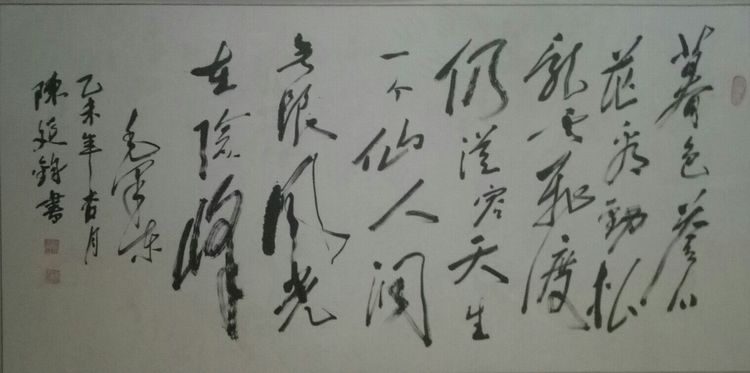 暮色蒼
茫看勁松
亂雲飛渡
仍從容天生
一个仙人洞
無限風光
在險峰
毛澤东
乙未年杏月
陳延書